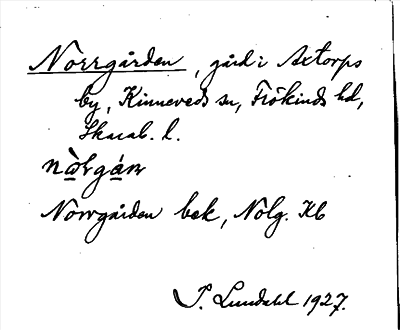 Norrgården, gård i Axtorps
by, Kinneveds sn, Frökinds hd,
Skarab. l.
nòlgárn
Norrgården bek, Nolg. Kb
I. Lundahl 1927.